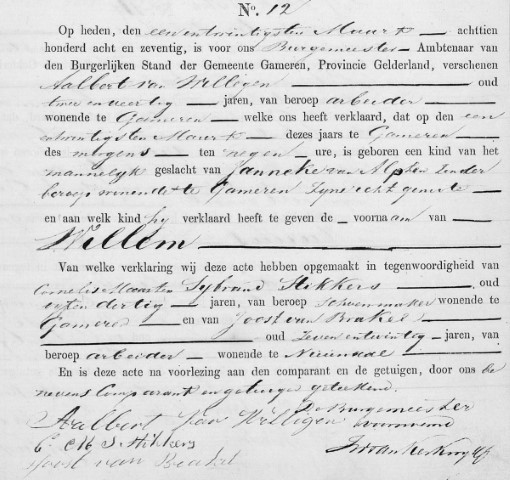 No. 12
Op heden, den een en twintigsten Maart achttien
honderd acht en zeventig, is voor ons Burgemeester Ambtenaar van
den Burgerlijken Stand der Gemeente Gameren, Provincie Gelderland, verschenen
Aalbert van Willigen oud
twee en veertig jaren, van beroep arbeider
wonende te Gameren welke ons heeft verklaard, dat op den een
en twintigsten Maart dezes jaars te Gameren
des morgens ten negen ure, is geboren een kind van het
mannelyk geslacht van Janneke van Alphen zonder
beroep wonende te Gameren zyne echtgenoote
en aan welk kind hy verklaard heeft te geven de voornaam van
Willem
Van welke verklaring wij deze acte hebben opgemaakt in tegenwoordigheid van
Cornelis Maarten Sybrand Stikkers oud
vyf en dertig jaren, van beroep Schoenmaker wonende te
Gameren en van Joost van Brakel
oud zeven en twintig jaren, van
beroep arbeider wonende te Nieuwaal
En is deze acte na voorlezing aan den comparant en de getuigen, door ons be
nevens Comparant en getuigen geteekend.
Aalbert van Willigen De Burgemeester
voornoemd
C M S Stikkers
Joost van Brakel